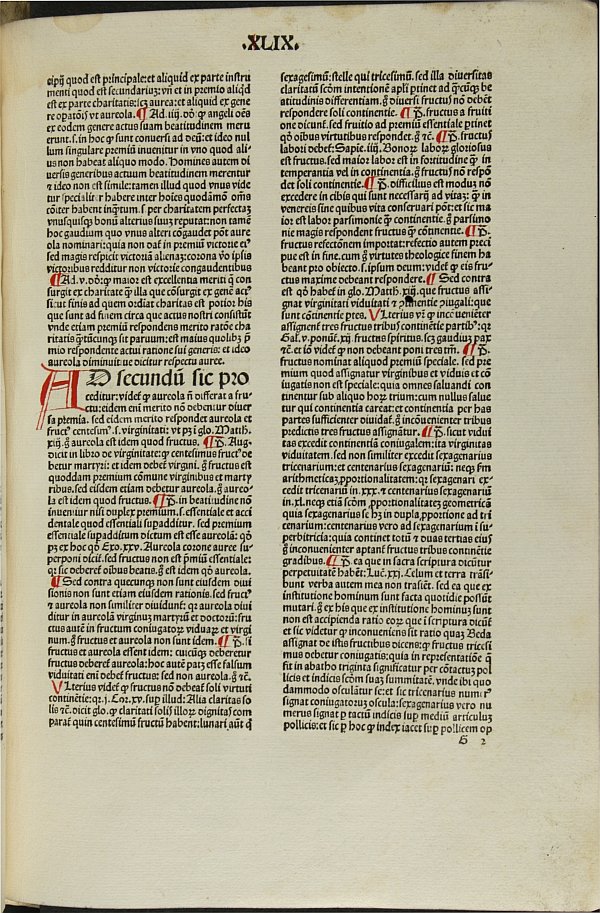 ·XLIX·
cipij quod est principale: et aliquid ex parte instru
menti quod est secundariuʒ: vn̄ et in premio aliqd̄
est ex parte charitatis: scʒ aurea: et aliquid ex gene
re opatōis vt aureola. ¶ Ad .iiij. dō: ꝙ angeli oēs
ex eodem genere actus suam beatitudinem meru
erunt. s. in hoc ꝙ sunt conuersi ad deū: et ideo nul
lum singulare premiū inuenitur in vno quod ali⸗
us non habeat aliquo modo. Homines autem di
uersis generibus actuum beatitudinem merentur
⁊ ideo non est simile: tamen illud quod vnus vide
tur specialiter habere inter hoīes quodāmō oēs
cōiter habent inq̄tum. s. per charitatem perfectaʒ
vnusquisqʒ bona alterius sua reputat: non tamē
hoc gaudium quo vnus alteri cōgaudet pōt aure
ola nominari: quia non daf in premiū victorie ei⸗
sed magis respicit victoriā alienaʒ: corona v̄o ipsis
victoribus redditur non victorie congaudentibus
¶ Ad .v. dō: ꝙ maior est excellentia meriti q̄ con
surgit ex charitate ꝙ̄ illa que cōsurgit ex genē act⸗
sic̄: ut finis ad quem ordiat̄ charitas est potior his
que sunt ad finem circa que actus nostri consistūt
vnde etiam premiū respondens merito ratōe cha
ritatis q̄tūcunqʒ sit paruum: est maius quolibʒ p̄
mio respondente actui ratione sui generis: et ideo
aureola diminutiue dicitur respectu auree.
AD secundū sic pro
ceditur: videf ꝙ aureola nō differat a fru⸗
ctu: eidem eni merito nō debentur diuer
sa p̄remia. sed eidem merito respondet aureola et
fruct⸗ centesim⸗. s. virginitati: vt pʒ i glo. Math.
xiij. g̊ aureola est idem quod fructus. ¶ P̄. Aug⸗
dicit in libro de virginitate: ꝙ centesimus fruct⸗ de
betur martyri: et idem debet virgini. g̊ fructus est
quoddam premium cōmune virginibus et marty
ribus. sed eisdem etiam debetur aureola. g̊ aureo⸗
la est idem quod fructus. ¶ P̄. in beatitudine nō
inuenitur nisi duplex premium. s. essentiale et acci
dentale quod essentiali supadditur. sed premium
essentiale supadditum dictum est esse aureolā: qō
pʒ ex hoc qō Exo. xxv. Aureola corone auree su⸗
perponi dicit̄. sed fructus non est p̄mium essentiale:
qr sic deberet̄ oibus beatis. g̊ est idem qō aureola.
¶ Sed contra quecunqʒ non sunt eiusdem diui
sionis non sunt etiam eiusdem rationis. sed fruct⸗
⁊ aureola non similiter diuidunt̄: qr aureola diui
ditur in aureolā virginuʒ martyrū et doctorū: fru
ctus autē in fructum coniugator̄ viduar̄ et virgi
num. g̊ fructus et aureola non sunt idem. ¶ P̄. si
fructus et aureola essent idem: cuicūqʒ deberetur
fructus deberet̄ aureola: hoc autē patʒ esse falsum
viduitati eni debet̄ fructus: sed non aureola. g̊ ⁊c̄.
Vlterius videf ꝙ fructus nō debeat̄ soli virtuti
continētie: qr. i. Cor. xv. sup illud: Alia claritas so
lis ⁊c̄. dicit glo. ꝙ claritati solis illor̄ dignitas com
parat̄ quin centesimū fructū habent: lunari aūt q̄
sexagesimū: stelle qui tricesimū. sed illa diuersitas
claritatū scōm intentionē apli ptinet ad q̄cūqʒ be
atitudinis differentiam. g̊ diuersi fructus nō debēt
respondere soli continentie. ¶ P̄. fructus a fruiti
one dicunt̄. sed fruitio ad premiū essentiale ptinet
qō oibus virtutibus respondet. g̊ ⁊c̄. ¶ P̄. fructus
labori debet̄: Sapie. iiij. Bonor̄ labor̄ gloriosus
est fructus. sed maior labor est in fortitudine ꝙ̄ in
temperantia vel in continentia. g̊ fructus nō respō
det soli continentie. ¶ P̄. difficilius est modū nō
excedere in cibis qui sunt necessarij ad vitaʒ: ꝙ̄ in
venereis sine quibus vita conseruari pōt: et sic ma
ior est labor parsimonie ꝙ̄ continentie. g̊ parsimo
nie magis respondent fructus ꝙ̄ cōtinentie. ¶ P̄.
fructus refectionem importat: refectio autem preci
pue est in fine. cum g̊ virtutes theologice finem ha
beant pro obiecto. s. ipsum deum: videf ꝙ eis fru⸗
ctus maxime debeant respondere. ¶ Sed contra
est qō habet̄ in glo. Math. xiij. que fructus assi⸗
gnat virginitati viduitati ⁊ ptinentie piugali: que
sunt cōtinentie ptes. Vlterius vr̄ ꝙ incōueniēter
assignent̄ tres fructus tribus continētie partibʒ: qr
Gal. v. ponunt̄. xij fructus spiritus. scʒ gaudiuʒ pax
⁊c̄. et iō videt̄ ꝙ non debeant poni tres tm̄. ¶ P̄.
fructus nominat aliquod premiū speciale. sed pre
mium quod assignatur virginibus et viduis et cō
iugatis non est speciale: quia omnes saluandi con
tinentur sub aliquo hor̄ trium: cum nullus salue
tur qui continentia careat: et continentia per has
partes sufficienter diuidat̄. g̊ incōuenienter tribus
predictis tres fructus assignāt̄. ¶ P̄. sicut vidui
tas excedit continentiā coniugalem: ita virginitas
viduitatem. sed non similiter excedit sexagenarius
tricenarium: et centenarius sexagenariū: neqʒ s̄m
arithmeticaʒ proportionalitatem: qr sexagenari⸗ ex⸗
cedit tricenariū in .xxx. ⁊ centenarius sexagenariū
in .xl. neqʒ etiā scōm proportionalitateʒ geometricā
quia sexagenarius se hʒ in dupla proportione ad tri
cenarium: centenarius vero ad sexagenarium i su⸗
perbitricia: quia continet totū ⁊ duas tertias eius
g̊ inconuenienter aptant̄ fructus tribus continētie
gradibus. ¶ P̄. ea que in sacra scriptura dicūtur
perpetuitatē habēt: Luc̄. xxi. Celum et terra trāsi⸗
bunt verba autem mea non trāsiēt. sed ea que ex
institutione hominum sunt facta quotidie possūt
mutari. g̊ ex his que ex institutione hominuʒ sunt
non est accipienda ratio eor̄ que i scriptura dicūt̄
et sic videtur ꝙ inconueniens sit ratio quaʒ Beda
assignat de istis fructibus dicens: ꝙ fructus tricesi
mus debetur coniugatis: quia in representatiōe q̄
fit in abatho triginta significatur per cōtactuʒ pol
licis et indicis scōm suaʒ summitatē. vnde ibi quo
dammodo osculātur se: et sic tricenarius num⸗
signat coniugatoruʒ oscula: sexagenarius vero nu
merus signat̄ p tactū indicis sup mediū articulū
pollicis: et sic p hoc ꝙ index iacet sup pollicem op
G 2